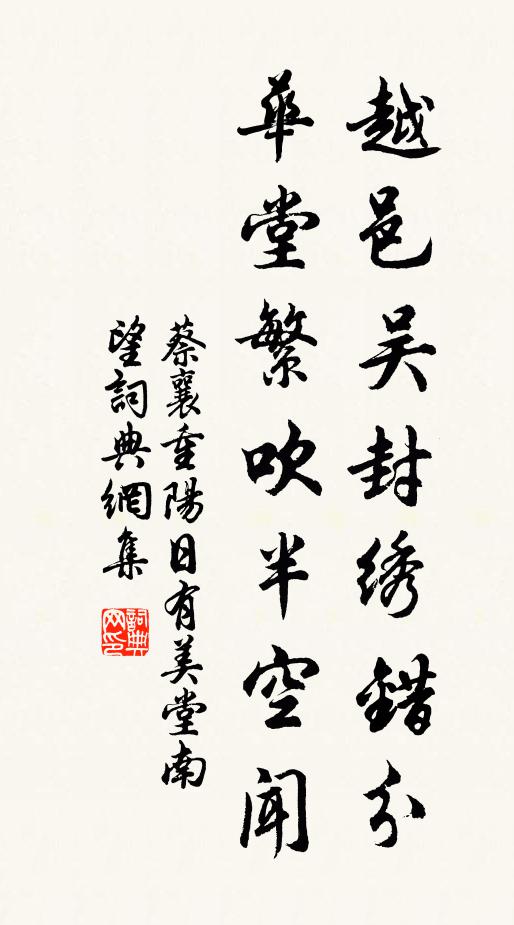 越邑吴封绣錯分
華堂繁吹半空闻
蔡襄重陽日有美堂南
望詞典網集
詞典
网印